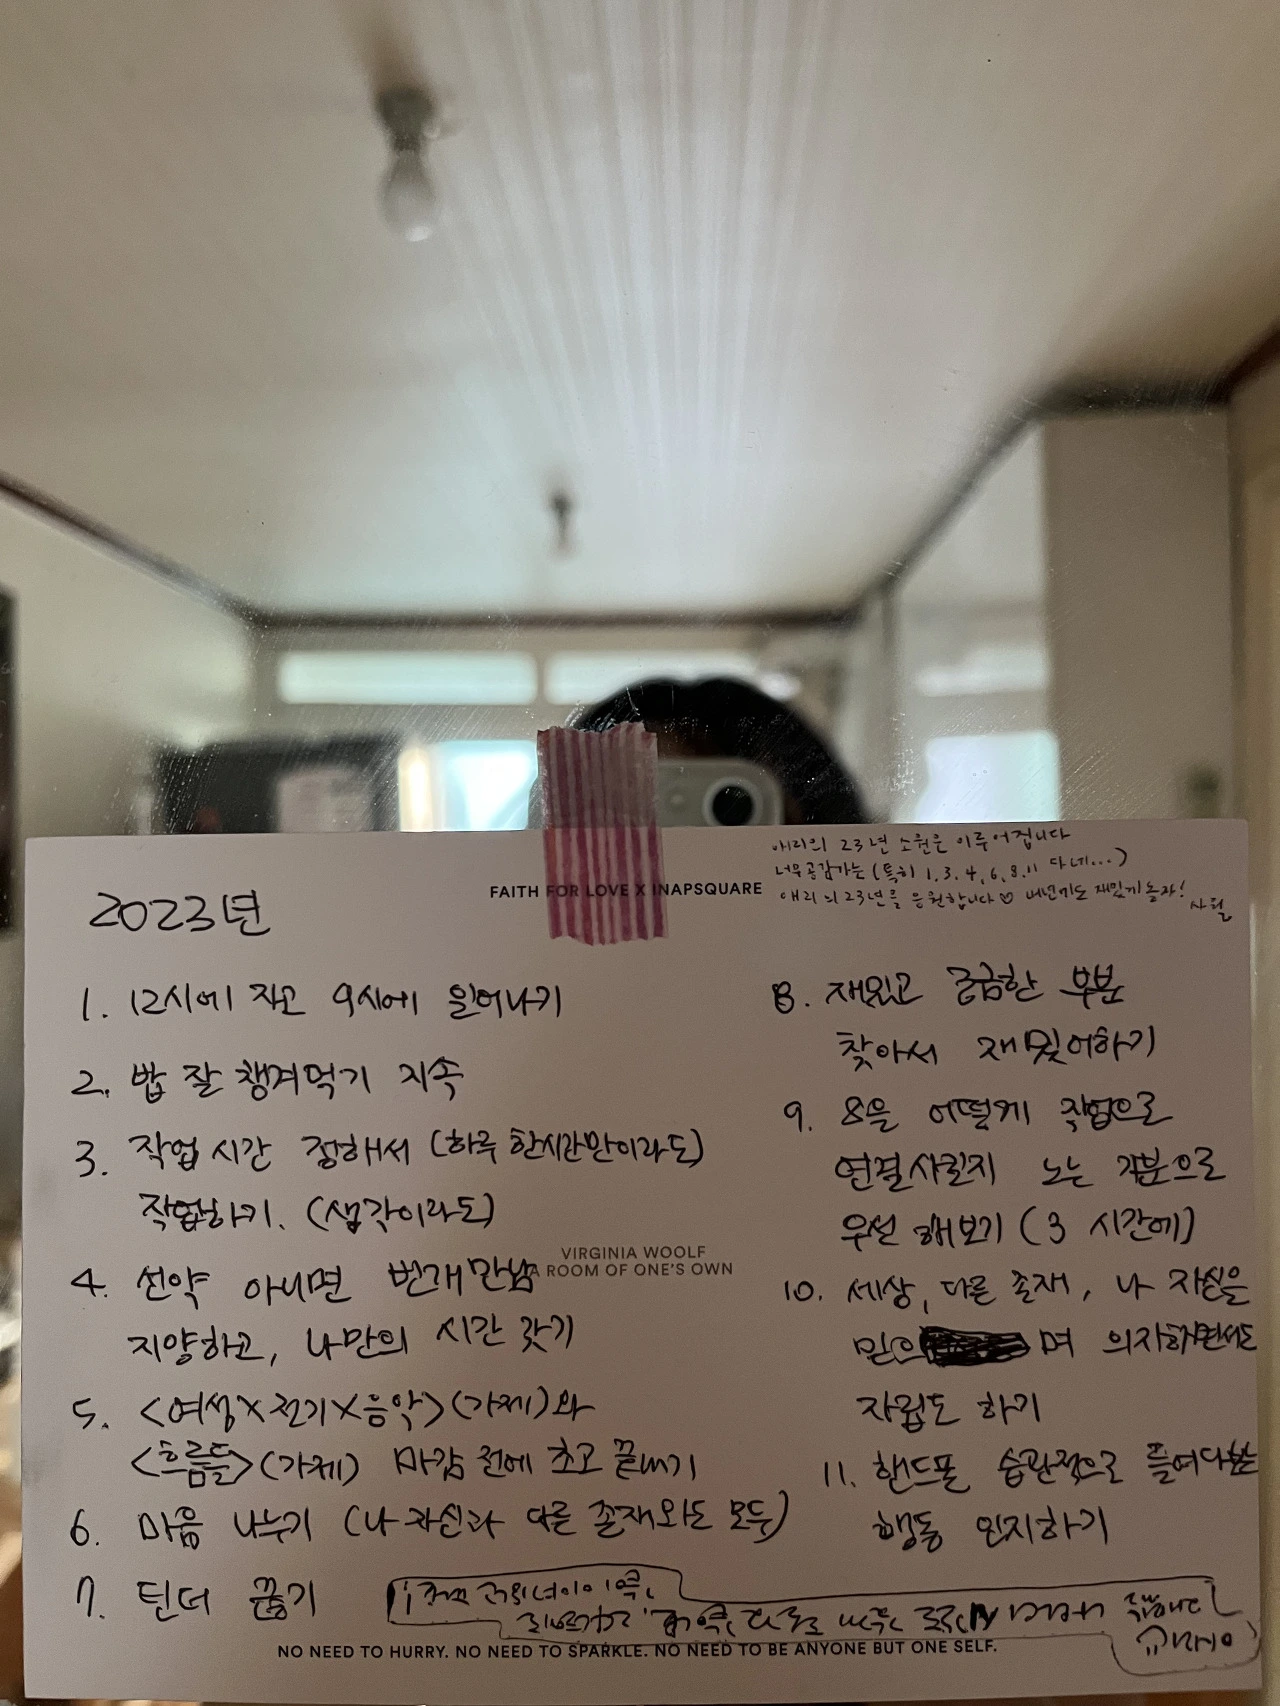 애리의 23년 소원은 이루어집니다
너무공감가는 (특히 1, 3, 4, 6, 8, 11 다네...)
애리의 23년을 응원합니다♡ 내년기도 재밌게놀자!
사월
FAITH FOR LOVE X INAPSQUARE
2023년
1. 12시에 자고 9시에 일어나기
2. 밥 잘 챙겨먹기 지속
3. 작업 시간 정해서 (하루 한시간만이라도)
작업하기. (생각이라도)
4. 선약 아니면 번개만남
지양하고, 나만의 시간 갖기
VIRGINIA WOOLF
A ROOM OF ONE'S OWN
5. <여성X전기X음악>(가제)와
<흐름들>(가제) 마감 전에 초고 끝내기
6. 마음 나누기 (나 자신과 다른 존재와도 모두)
7. 틴더 끊기
8. 재밌고 궁금한 부분
찾아서 재밌어하기
9. 8을 어떻게 작업으로
연결시킬지 노는 기분으로
우선 해보기 (3 시간에)
10. 세상, 다른 존재, 나 자신을
믿으며 의지하면서도
자립도 하기
11. 핸드폰 습관적으로 들여다보는
행동 인지하기
NO NEED TO HURRY. NO NEED TO SPARKLE. NO NEED TO BE ANYONE BUT ONE SELF.